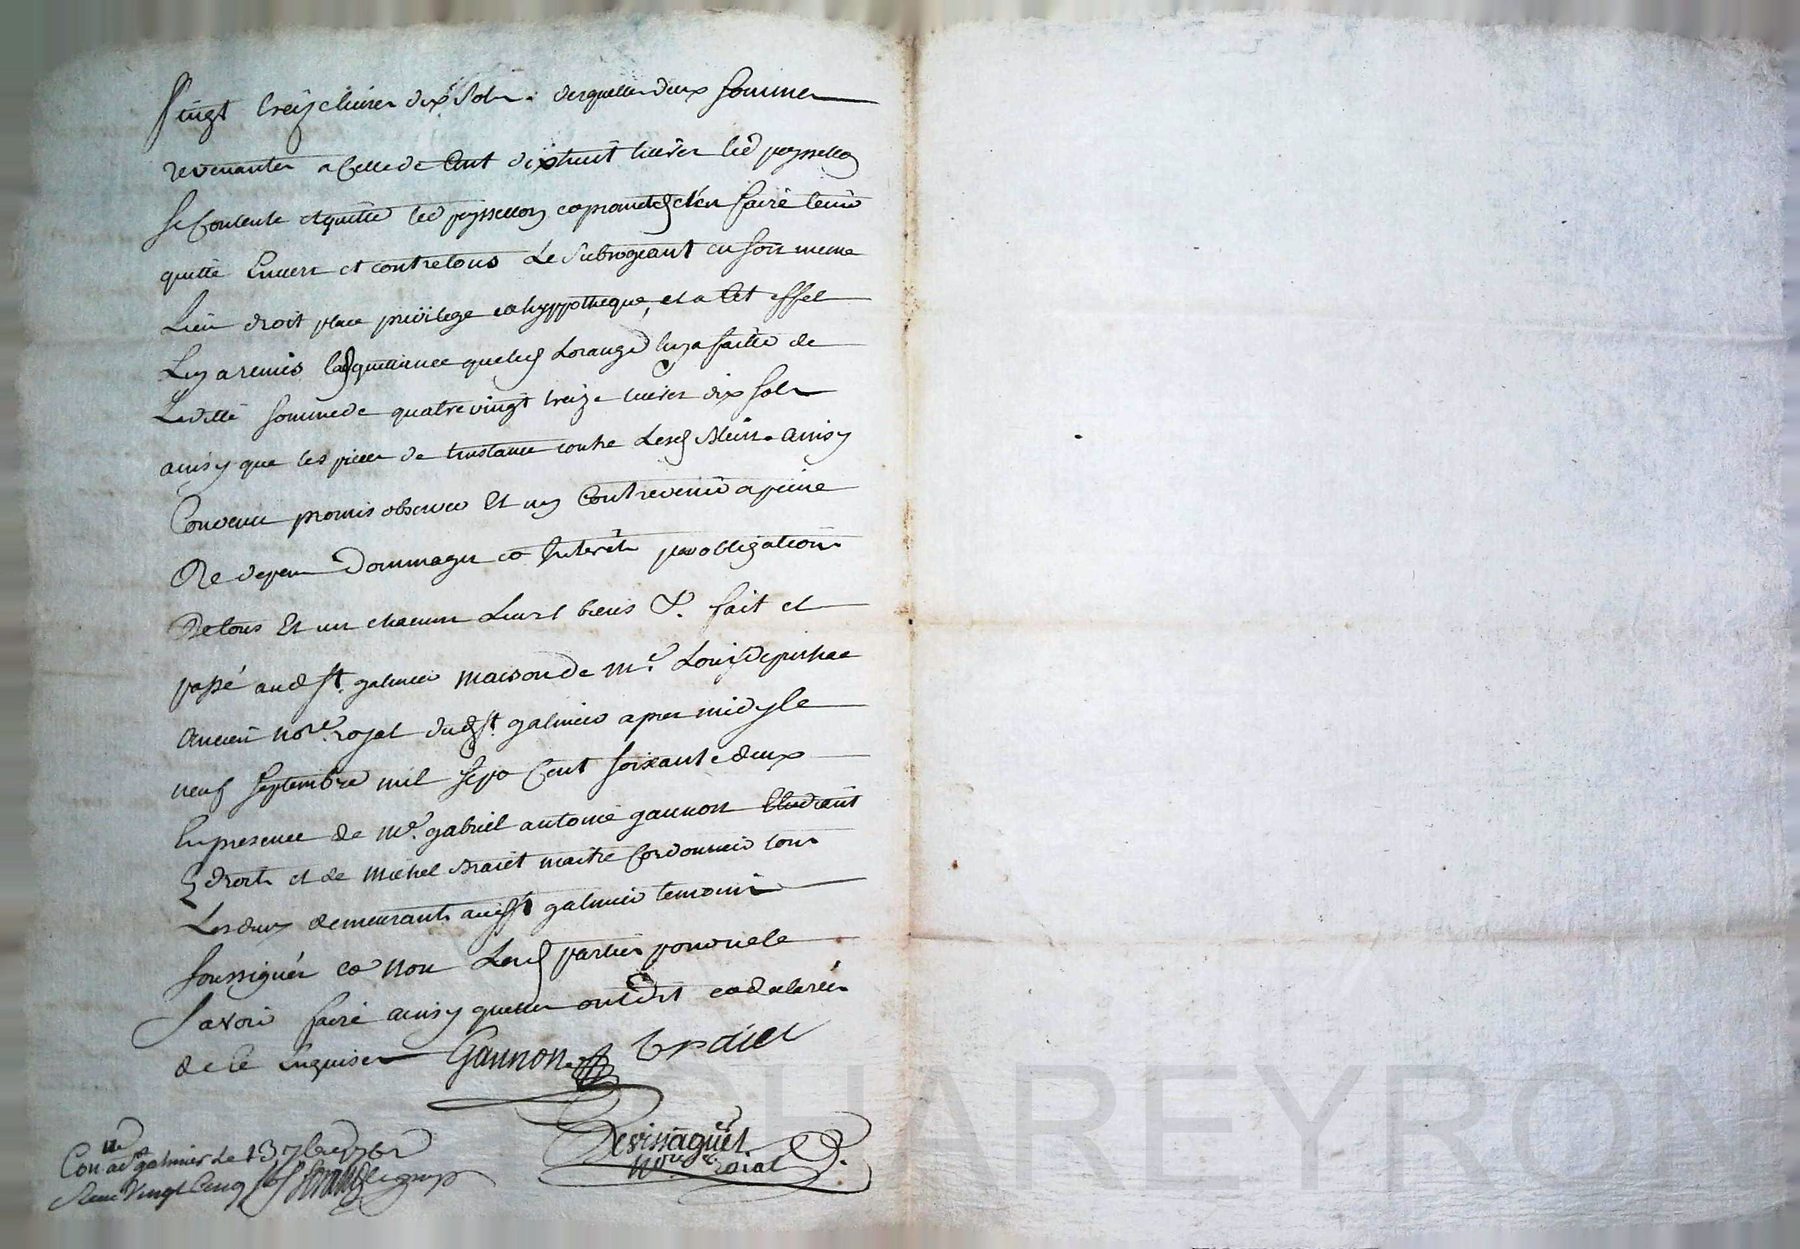 Vingt treize livres dix sols. desquelles deux sommes
revenantes a celle de Cent dixhuit livres led peyssellon
se Contente et quitte led peyssellon et promet de l'en faire tenir
quitte Envers et contre tous Le Subrogeant en son meme
Lieu droit place privilege et hyppotheque, et a Cet effet
Luy a remis lad quittance que led Lorange luy a faitte de
Laditte somme de quatre vingt treize livres dix sols
ainsy que les pieces de L'instance contre Lesd ainsy
Convenu promis observer Et ny Contrevenir a peine
De depens Dommages et Interêts par obligations
De tous Et un chacun Leurs biens &. fait et
passé aud St. galmier maison de Me. Louis
ancien nore. royal dud St. galmier apres midy le
neuf Septembre mil Sept Cent Soixante deux
En presence de Me. gabriel antoine gaunon Etudiant
En droits et de Michel maitre Cordonnier tous
Les deux demeurants aud St galmier temoins
soussignés et non Lesd parties pour ne le
Savoir faire ainsy quelles ont dit et declarées
de ce Enquises Gaunon Verdier
Devissaguet
Nore. roial
Conlle a St galmier le 13 7bre 1762
Reçu Vingt Cinq s
CHAREYRON